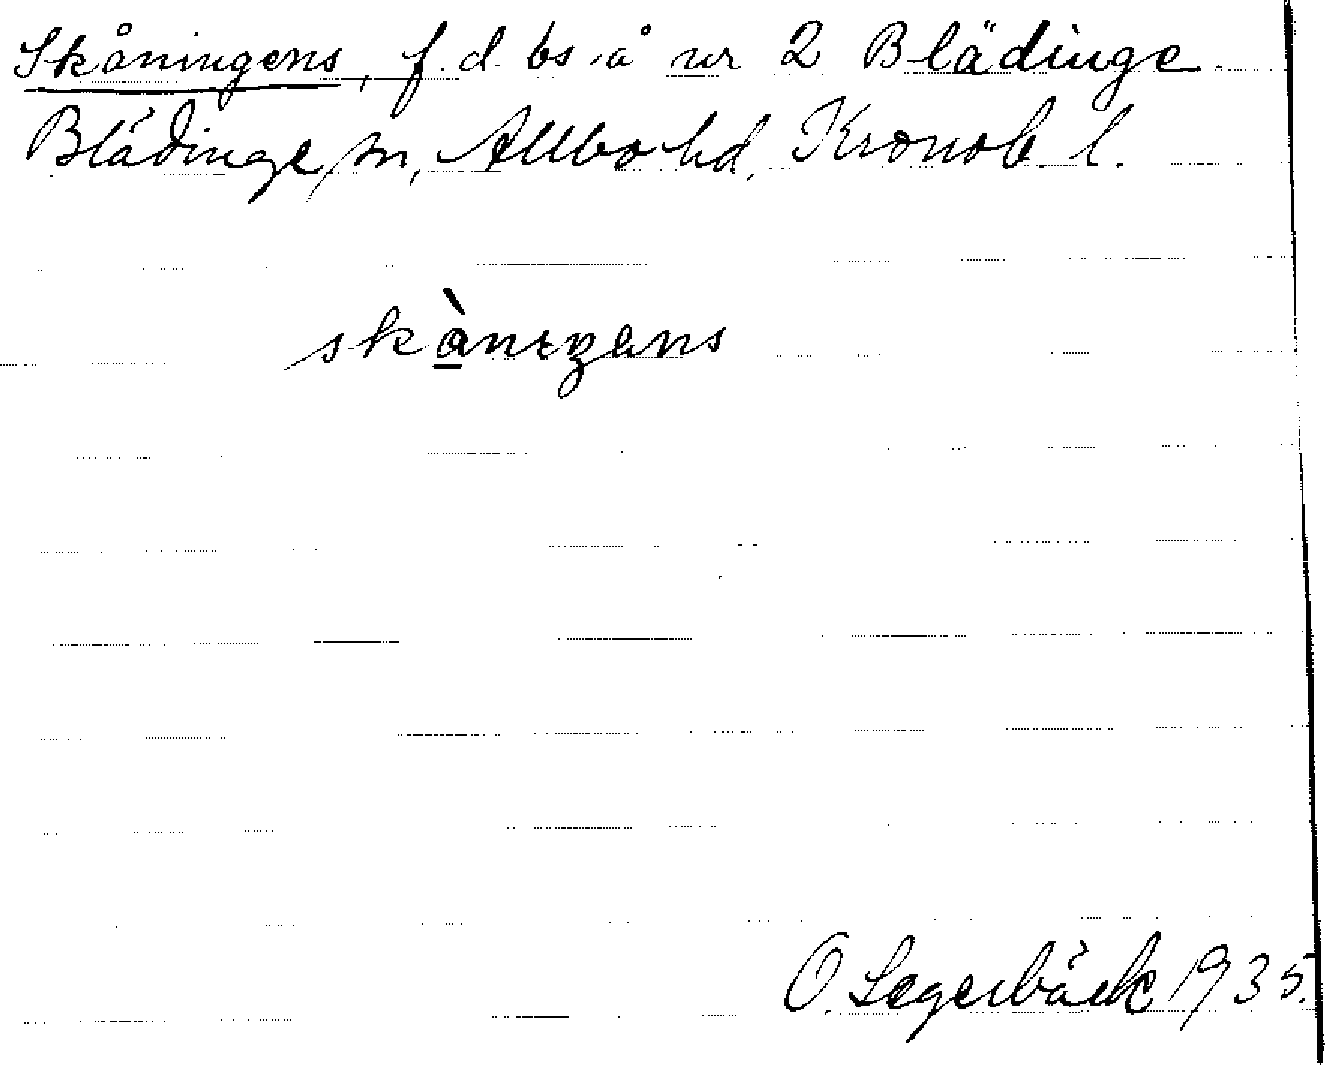 Skåningens, f. d. bs å nr 2 Blädinge
Blädinge sn, Allbo hd, Kronob. l.
skànıŋens
O. Segerbäck 1935.